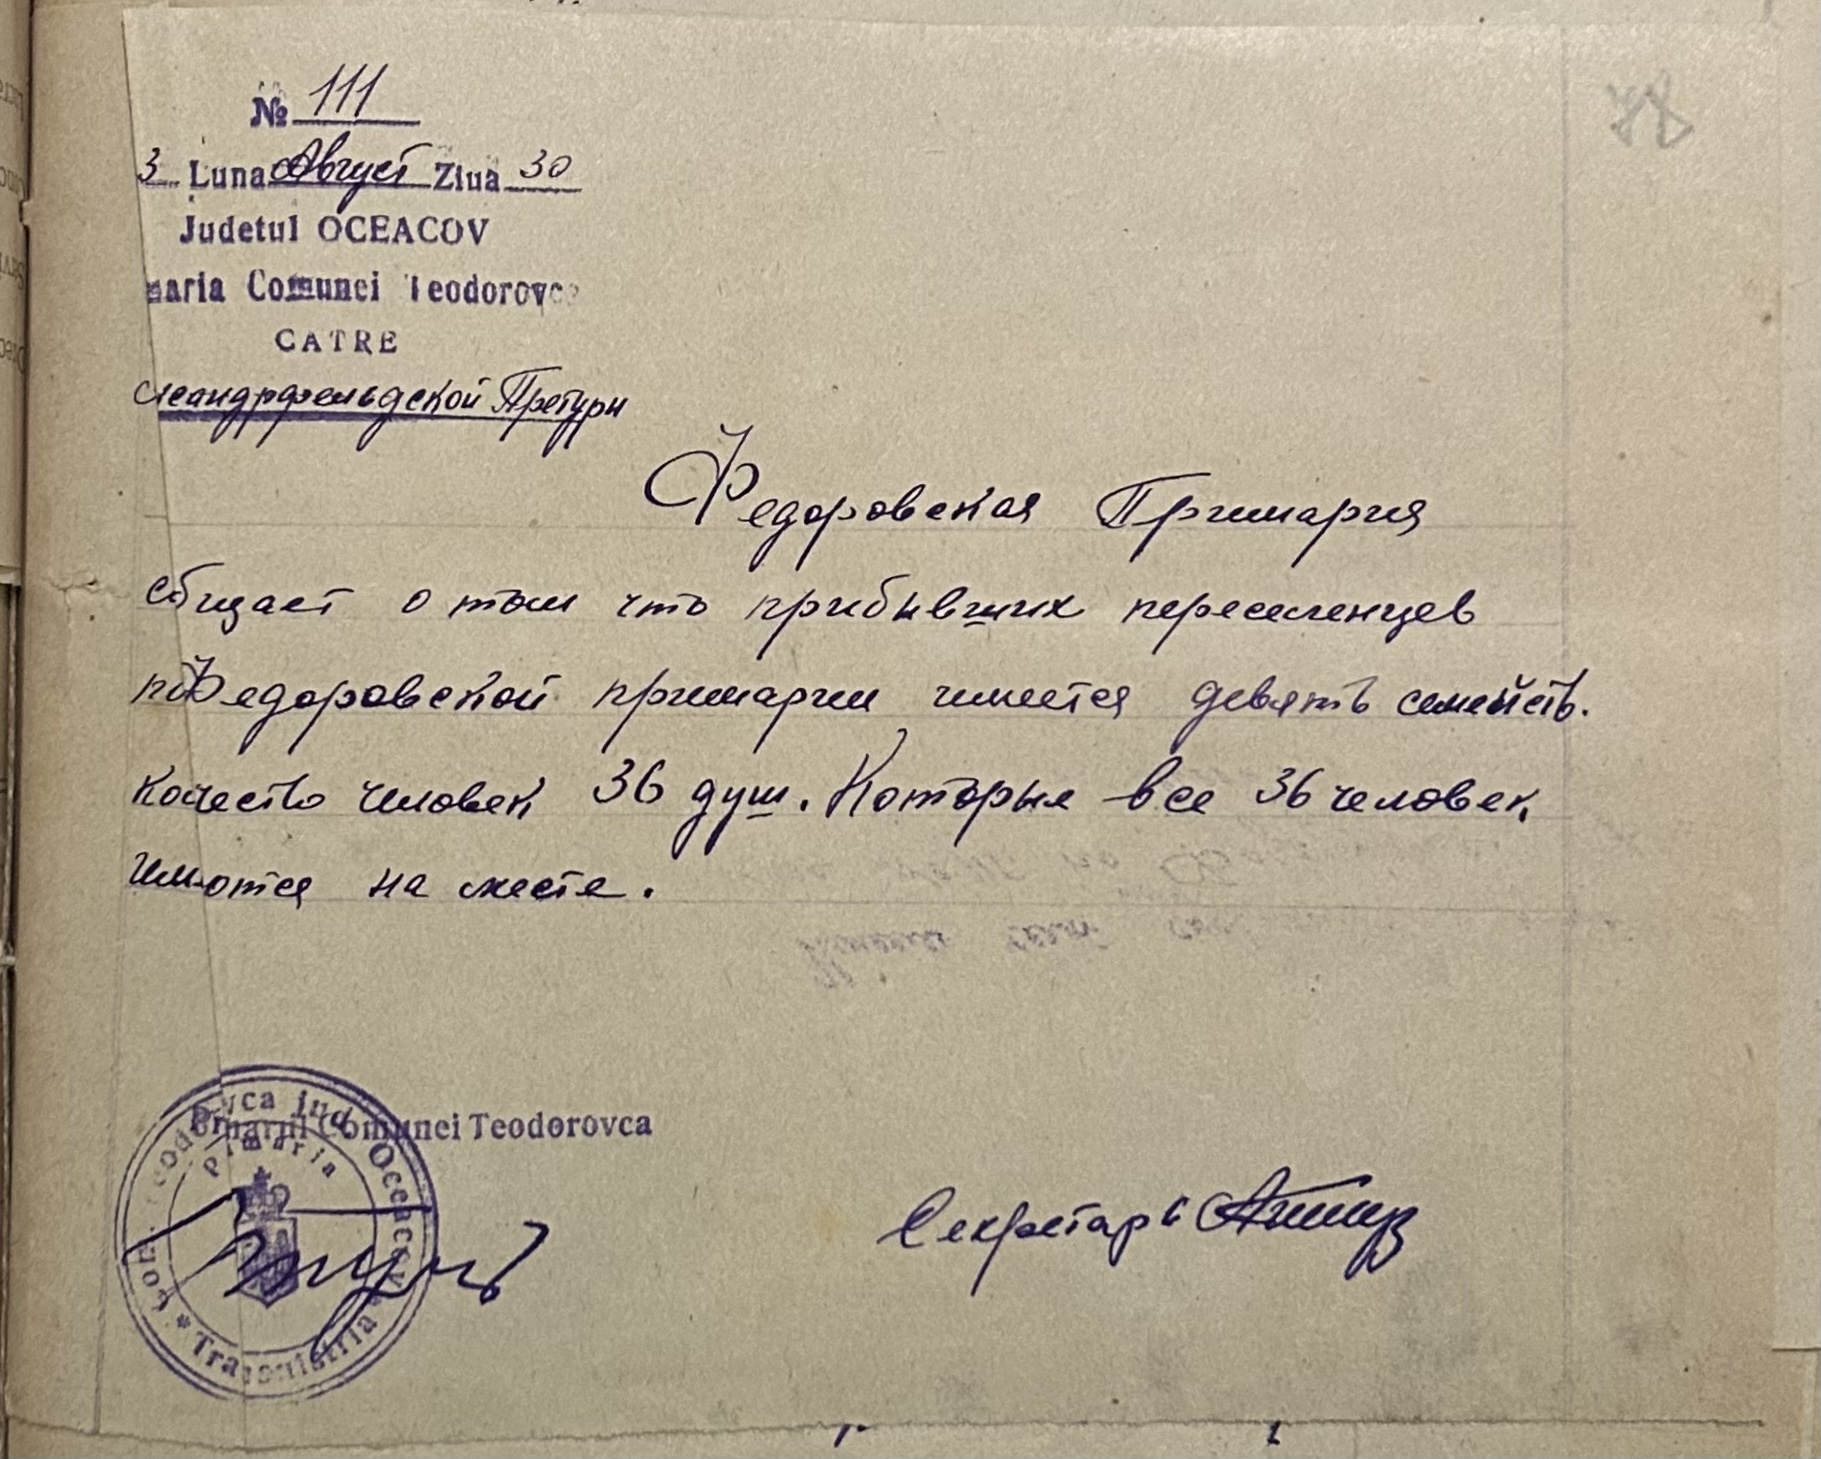 № 111
3 Luna Август Ziua 30
Judetul OCEACOV
maria Comunei Teodorovca
CATRE
лександрфельдской Претури
Федоровская Примария
сбщает о том что прибывших переселенцев
по Федоровской примарии имеется девять семейств.
качество человек 36 душ. Которые все 36 человек
имются на месте.
Primarul Comunei Teodorovca
Com. Teodorovca jud. Oceacov
Primaria
* Transnistria *
Секретарь